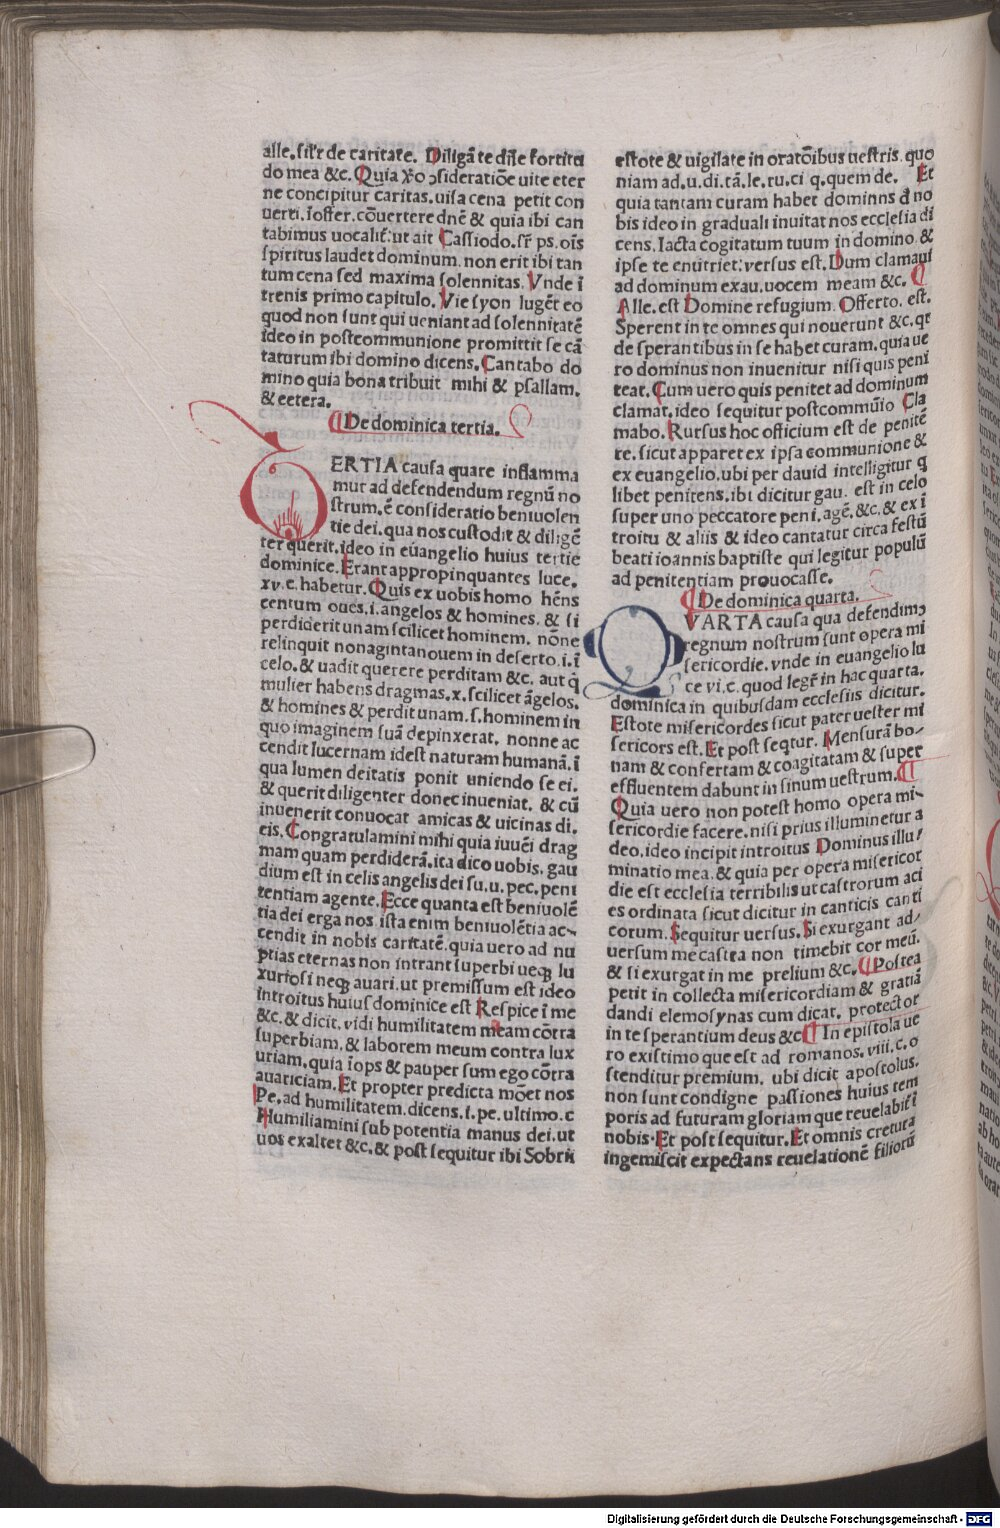 alle.sil'r de caritate. Diligā te dn̄e fortitu
do mea &c. Quia xp̄o ɔsideratiōe uite eter
ne concipitur caritas. uisa cena petit con
uerti. i offer. cōuertere dnē & quia ibi can
tabimus uocalit̄: ut ait Cassiodo. sr̄ ps. oīs
spiritus laudet dominum. non erit ibi tan
tum cena sed maxima solennitas. Vnde ī
trenis primo capitulo. Vie syon lugēt eo
quod non sunt qui ueniant ad solennitatē
ideo in postcommunione promittit se cā
taturum ibi domino dicens. Cantabo do
mino quia bona tribuit mihi & psallam.
& cetera.
¶ De dominica tertia.
TERTIA causa quare inflamma
mur ad defendendum regnū no
strum. ē consideratio beniuolen
tie dei. qua nos custodit & diligē
ter querit. ideo in euangelio huius tertie
dominice. Erant appropinquantes luce.
xv. c. habetur. Quis ex uobis homo hēns
centum oues. i. angelos & homines. & si
perdiderit unam scilicet hominem. nōne
relinquit nonagintanouem in deserto. i. ī
celo. & uadit querere perditam &c. aut q̄
mulier habens dragmas. x. scilicet āgelos.
& homines & perdit unam. s. hominem in
quo imaginem suā depinxerat. nonne ac
cendit lucernam idest naturam humanā. ī
qua lumen deitatis ponit uniendo se ei.
& querit diligenter donec inueniat. & cū
inuenerit conuocat amicas & uicinas di.
eis. Congratulamini mihi quia iuuēi drag
mam quam perdiderā. ita dico uobis. gau
dium est in celis angelis dei su. u. pec. peni
tentiam agente. Ecce quanta est beniuolē
tia dei erga nos. ista enim beniuolētia ac-
cendit in nobis caritatē. quia uero ad nu
ptias eternas non intrant superbi ueqꝫ lu
xuriosi neqꝫ auari. ut premissum est ideo
introitus huius dominice est Respice ī me
&c. & dicit. vidi humilitatem meam cōtra
superbiam. & laborem meum contra lux
uriam. quia īops & pauper sum ego cōtra
auariciam. Et propter predicta mōet nos
Pe. ad humilitatem. dicens. i. pe. ultimo. c
Humiliamini sub potentia manus dei. ut
uos exaltet &c. & post sequitur ibi Sobrii
estote & uigilate in oratōibus uestris. quo
niam ad. u. di. tā. le. ru. ci q. quem de. Et
quia tantam curam habet dominns d̄ no
bis ideo in graduali inuitat nos ecclesia di
cens. Iacta cogitatum tuum in domino &
ipse te enutriet: versus est. Dum clamaui
ad dominum exau. uocem meam &c. ¶
Alle. est Domine refugium. Offerto. est.
Sperent in te omnes qui nouerunt &c. qr
de sperantibus in se habet curam. quia ue
ro dominus non inuenitur nisi quis peni
teat. Cum uero quis penitet ad dominum
clamat. ideo sequitur postcommūio Cla
mabo. Rursus hoc officium est de penitē
te. sicut apparet ex ipsa communione &
ex euangelio. ubi per dauid intelligitur q
libet penitens. ibi dicitur gau. est in celo
super uno peccatore peni. agē. &c. & ex ī
troitu & aliis & ideo cantatur circa festū
beati ioannis baptiste qui legitur populū
ad penitentiam prouocasse.
¶ De dominica quarta.
QVARTA causa qua defendimꝰ
regnum nostrum sunt opera mi
sericordie. vnde in euangelio lu
ce vi. c. quod legēt in hac quarta.
dominica in quibusdam ecclesiis dicitur.
Estote misericordes sicut pater uester mi
sericors est. Et post seqtur. Mensurā bo-
nam & confertam & coagitatam & super
effluentem dabunt in sinum uestrum. ¶
Quia uero non potest homo opera mi-
sericordie facere. nisi prius illuminetur a
deo. ideo incipit introitus Dominus illu-
minatio mea. & quia per opera misericor
die est ecclesia terribilis ut castrorum aci
es ordinata sicut dicitur in canticis canti
corum. Sequitur uersus. Si exurgant ad-
uersum me castra non timebit cor meū.
& si exurgat in me prelium &c. ¶ Postea
petit in collecta misericordiam & gratiā
dandi elemosynas cum dicat. protector
in te sperantium deus &c. ¶ In epistola ue
ro existimo que est ad romanos. viii. c. o
stenditur premium. ubi dicit apostolus.
non sunt condigne passiones huius tem
poris ad futuram gloriam que reuelabit̄ ī
nobis. Et post sequitur. Et omnis cretura
ingemiscit expectans reuelationē filiorū
Digitalisierung gefördert durch die Deutsche Forschungsgemeinschaft - DFG